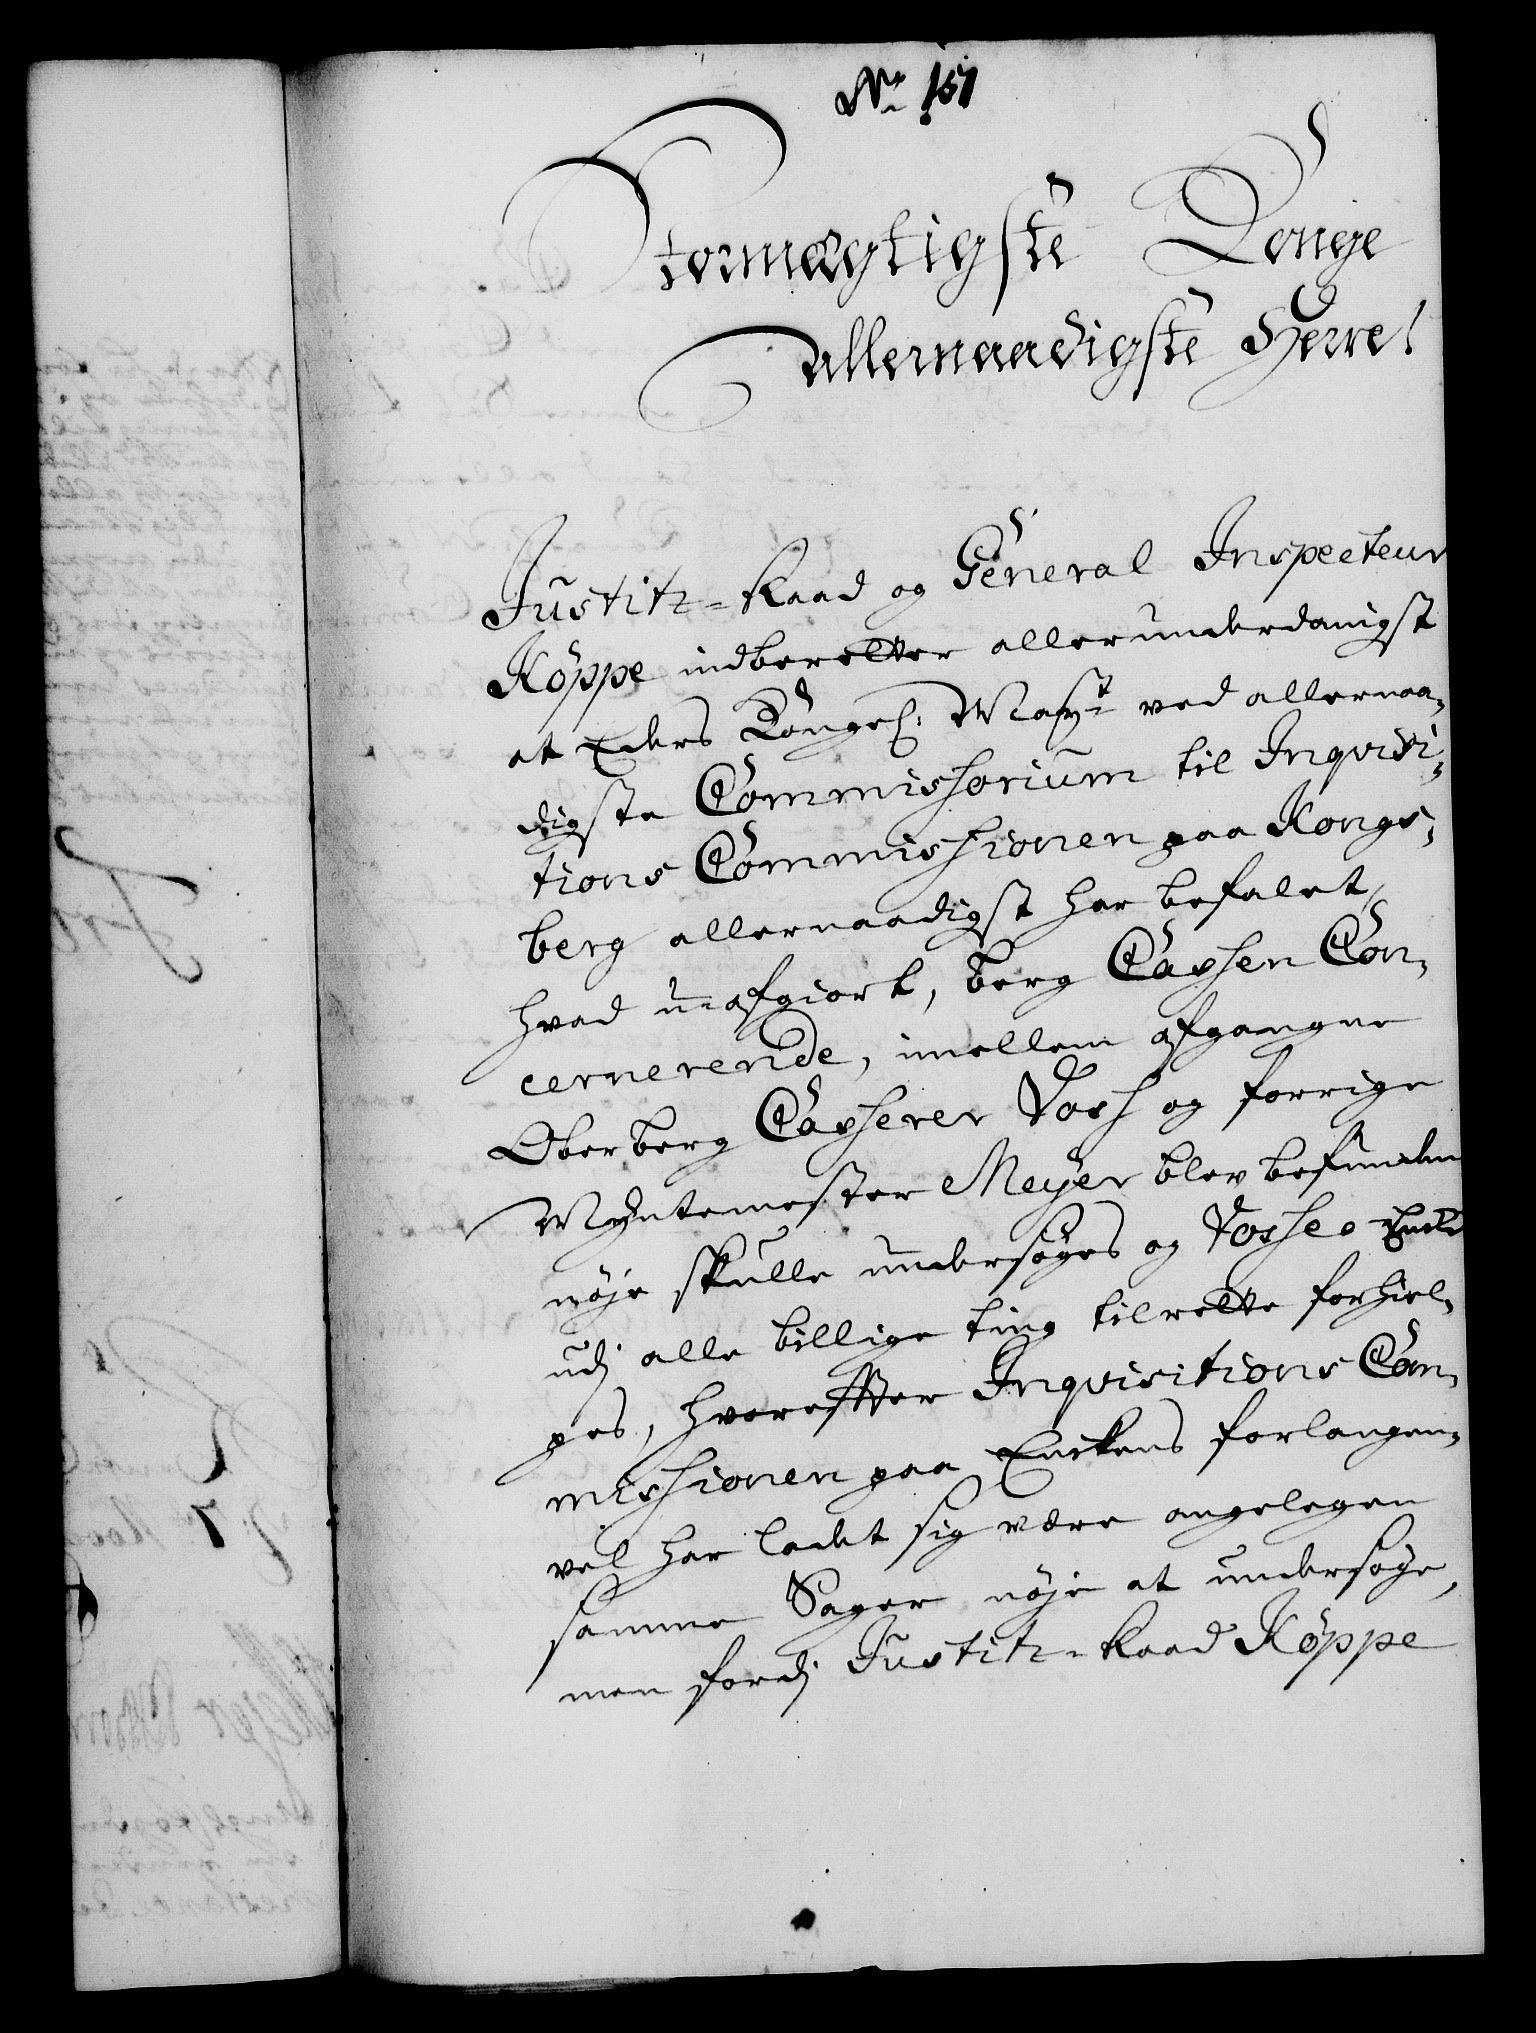 No 151
Stormægtigste Konge
allernaadigste Herre!
Justitz-Raad og General Inspecteur
Köppe indberetter allerunderdanigst
at Eders Kongel: Maÿt ved allernaa-
digste Commissorium til Inqvisi-
tions Commissionen paa Kongs-
berg allernaadigst har befalet,
hvad u-afgiort, berg Cassen Con-
cernerende, imellem afgangne
Oberberg Casserer Voss og forrige
Mÿntemester Meÿer blev befunden
nøje skulle undersøges og Vosses Encke
udj alle billige ting tilrette forhiel-
pes, hvorefter Inqvisitions Com-
missionen paa Enckens forlangen-
vel har ladet sig være angelegen
samme Sager nøje at undersøge,
men fordj Justitz-Raad Köppe